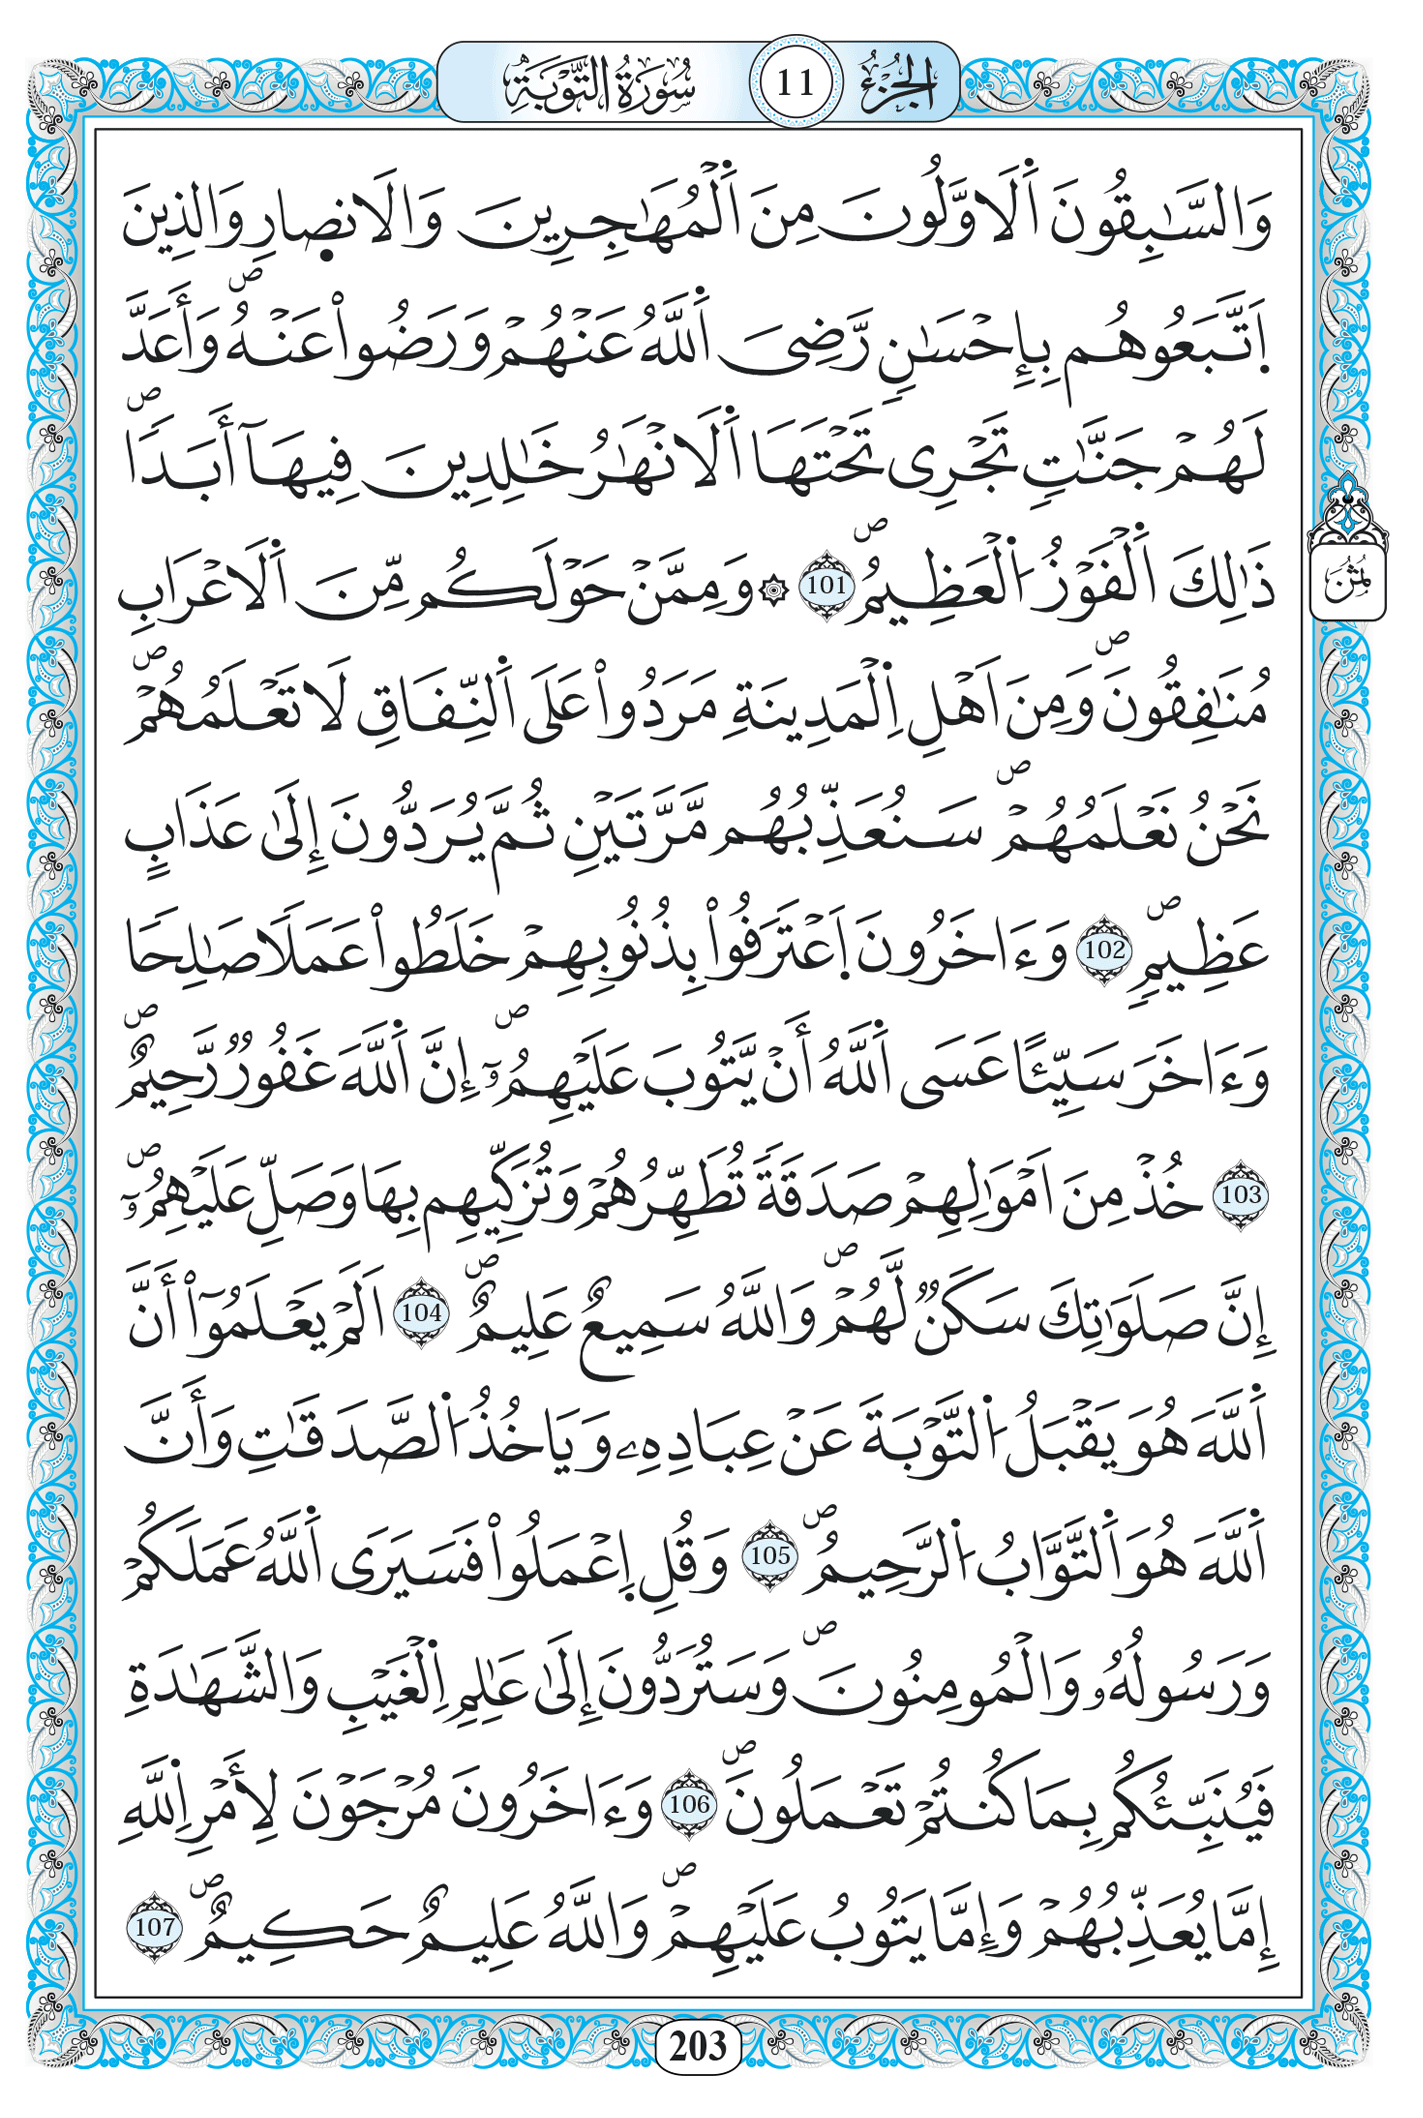 الجزء 11 سُورَةُ التَّوْبَةِ
وَالسَّٰبِقُونَ اَ۬لَاوَّلُونَ مِنَ اَ۬لْمُهَٰجِرِينَ وَالَانصِ۪ارِ وَالذِينَ
اَ۪تَّبَعُوهُم بِإِحْسَٰنٖ رَّضِيَ اَ۬للَّهُ عَنْهُمْ وَرَضُواْ عَنْهُۖ وَأَعَدَّ
لَهُمْ جَنَّٰتٖ تَجْرِي تَحْتَهَا اَ۬لَانْهَٰرُ خَٰلِدِينَ فِيهَآ أَبَداٗۖ
ذَٰلِكَ اَ۬لْفَوْزُ اُ۬لْعَظِيمُۖ 101 ۞ وَمِمَّنْ حَوْلَكُم مِّنَ اَ۬لَاعْرَابِ
مُنَٰفِقُونَۖ وَمِنَ اَهْلِ اِ۬لْمَدِينَةِ مَرَدُواْ عَلَى اَ۬لنِّفَاقِ لَا تَعْلَمُهُمْۖ
نَحْنُ نَعْلَمُهُمْۖ سَنُعَذِّبُهُم مَّرَّتَيْنِ ثُمَّ يُرَدُّونَ إِلَىٰ عَذَابٍ
عَظِيمٖۖ 102 وَءَاخَرُونَ اَ۪عْتَرَفُواْ بِذُنُوبِهِمْ خَلَطُواْ عَمَلاٗ صَٰلِحاٗ
وَءَاخَرَ سَيِّئاً عَسَى اَ۬للَّهُ أَنْ يَّتُوبَ عَلَيْهِمُۥٓۖ إِنَّ اَ۬للَّهَ غَفُورٞ رَّحِيمٌۖ
103 خُذْ مِنَ اَمْوَٰلِهِمْ صَدَقَةٗ تُطَهِّرُهُمْ وَتُزَكِّيهِم بِهَا وَصَلِّ عَلَيْهِمُۥٓۖ
إِنَّ صَلَوَٰتِكَ سَكَنٞ لَّهُمْۖ وَاللَّهُ سَمِيعٌ عَلِيمٌۖ 104 اَلَمْ يَعْلَمُوٓاْ أَنَّ
اَ۬للَّهَ هُوَ يَقْبَلُ اُ۬لتَّوْبَةَ عَنْ عِبَادِهِۦ وَيَاخُذُ اُ۬لصَّدَقَٰتِ وَأَنَّ
اَ۬للَّهَ هُوَ اَ۬لتَّوَّابُ اُ۬لرَّحِيمُۖ 105 وَقُلِ اِ۪عْمَلُواْ فَسَيَرَى اَ۬للَّهُ عَمَلَكُمْ
وَرَسُولُهُۥ وَالْمُومِنُونَۖ وَسَتُرَدُّونَ إِلَىٰ عَٰلِمِ اِ۬لْغَيْبِ وَالشَّهَٰدَةِ
فَيُنَبِّئُكُم بِمَا كُنتُمْ تَعْمَلُونَۖ 106 وَءَاخَرُونَ مُرْجَوْنَ لِأَمْرِ اِ۬للَّهِ
إِمَّا يُعَذِّبُهُمْ وَإِمَّا يَتُوبُ عَلَيْهِمْۖ وَاللَّهُ عَلِيمٌ حَكِيمٌۖ 107
ثُمُن
203